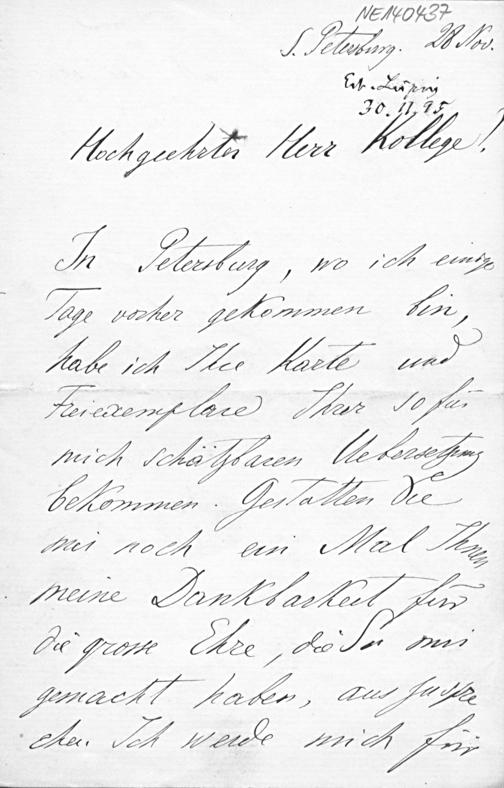 NE140437
S. Petersburg. 28 Nov.
Erh. Leipzig
30.11.95
Hochgeehrter Herr Kollege!
In Petersburg, wo ich einige
Tage vorher gekommen bin,
habe ich Ihre Karte und
Freiexemplare Ihrer so für
mich schätzbaren Uebersetzung
bekommen. Gestatten Sie
mir noch ein Mal Ihnen
meine Dankbarkeit für
die grosse Ehre, die Sie mir
gemacht haben, auszuspre
chen. Ich werde mich für